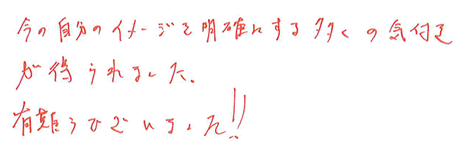 今の自分のイメージを明確にする多くの気付き
が得られました。
有難うございました!!